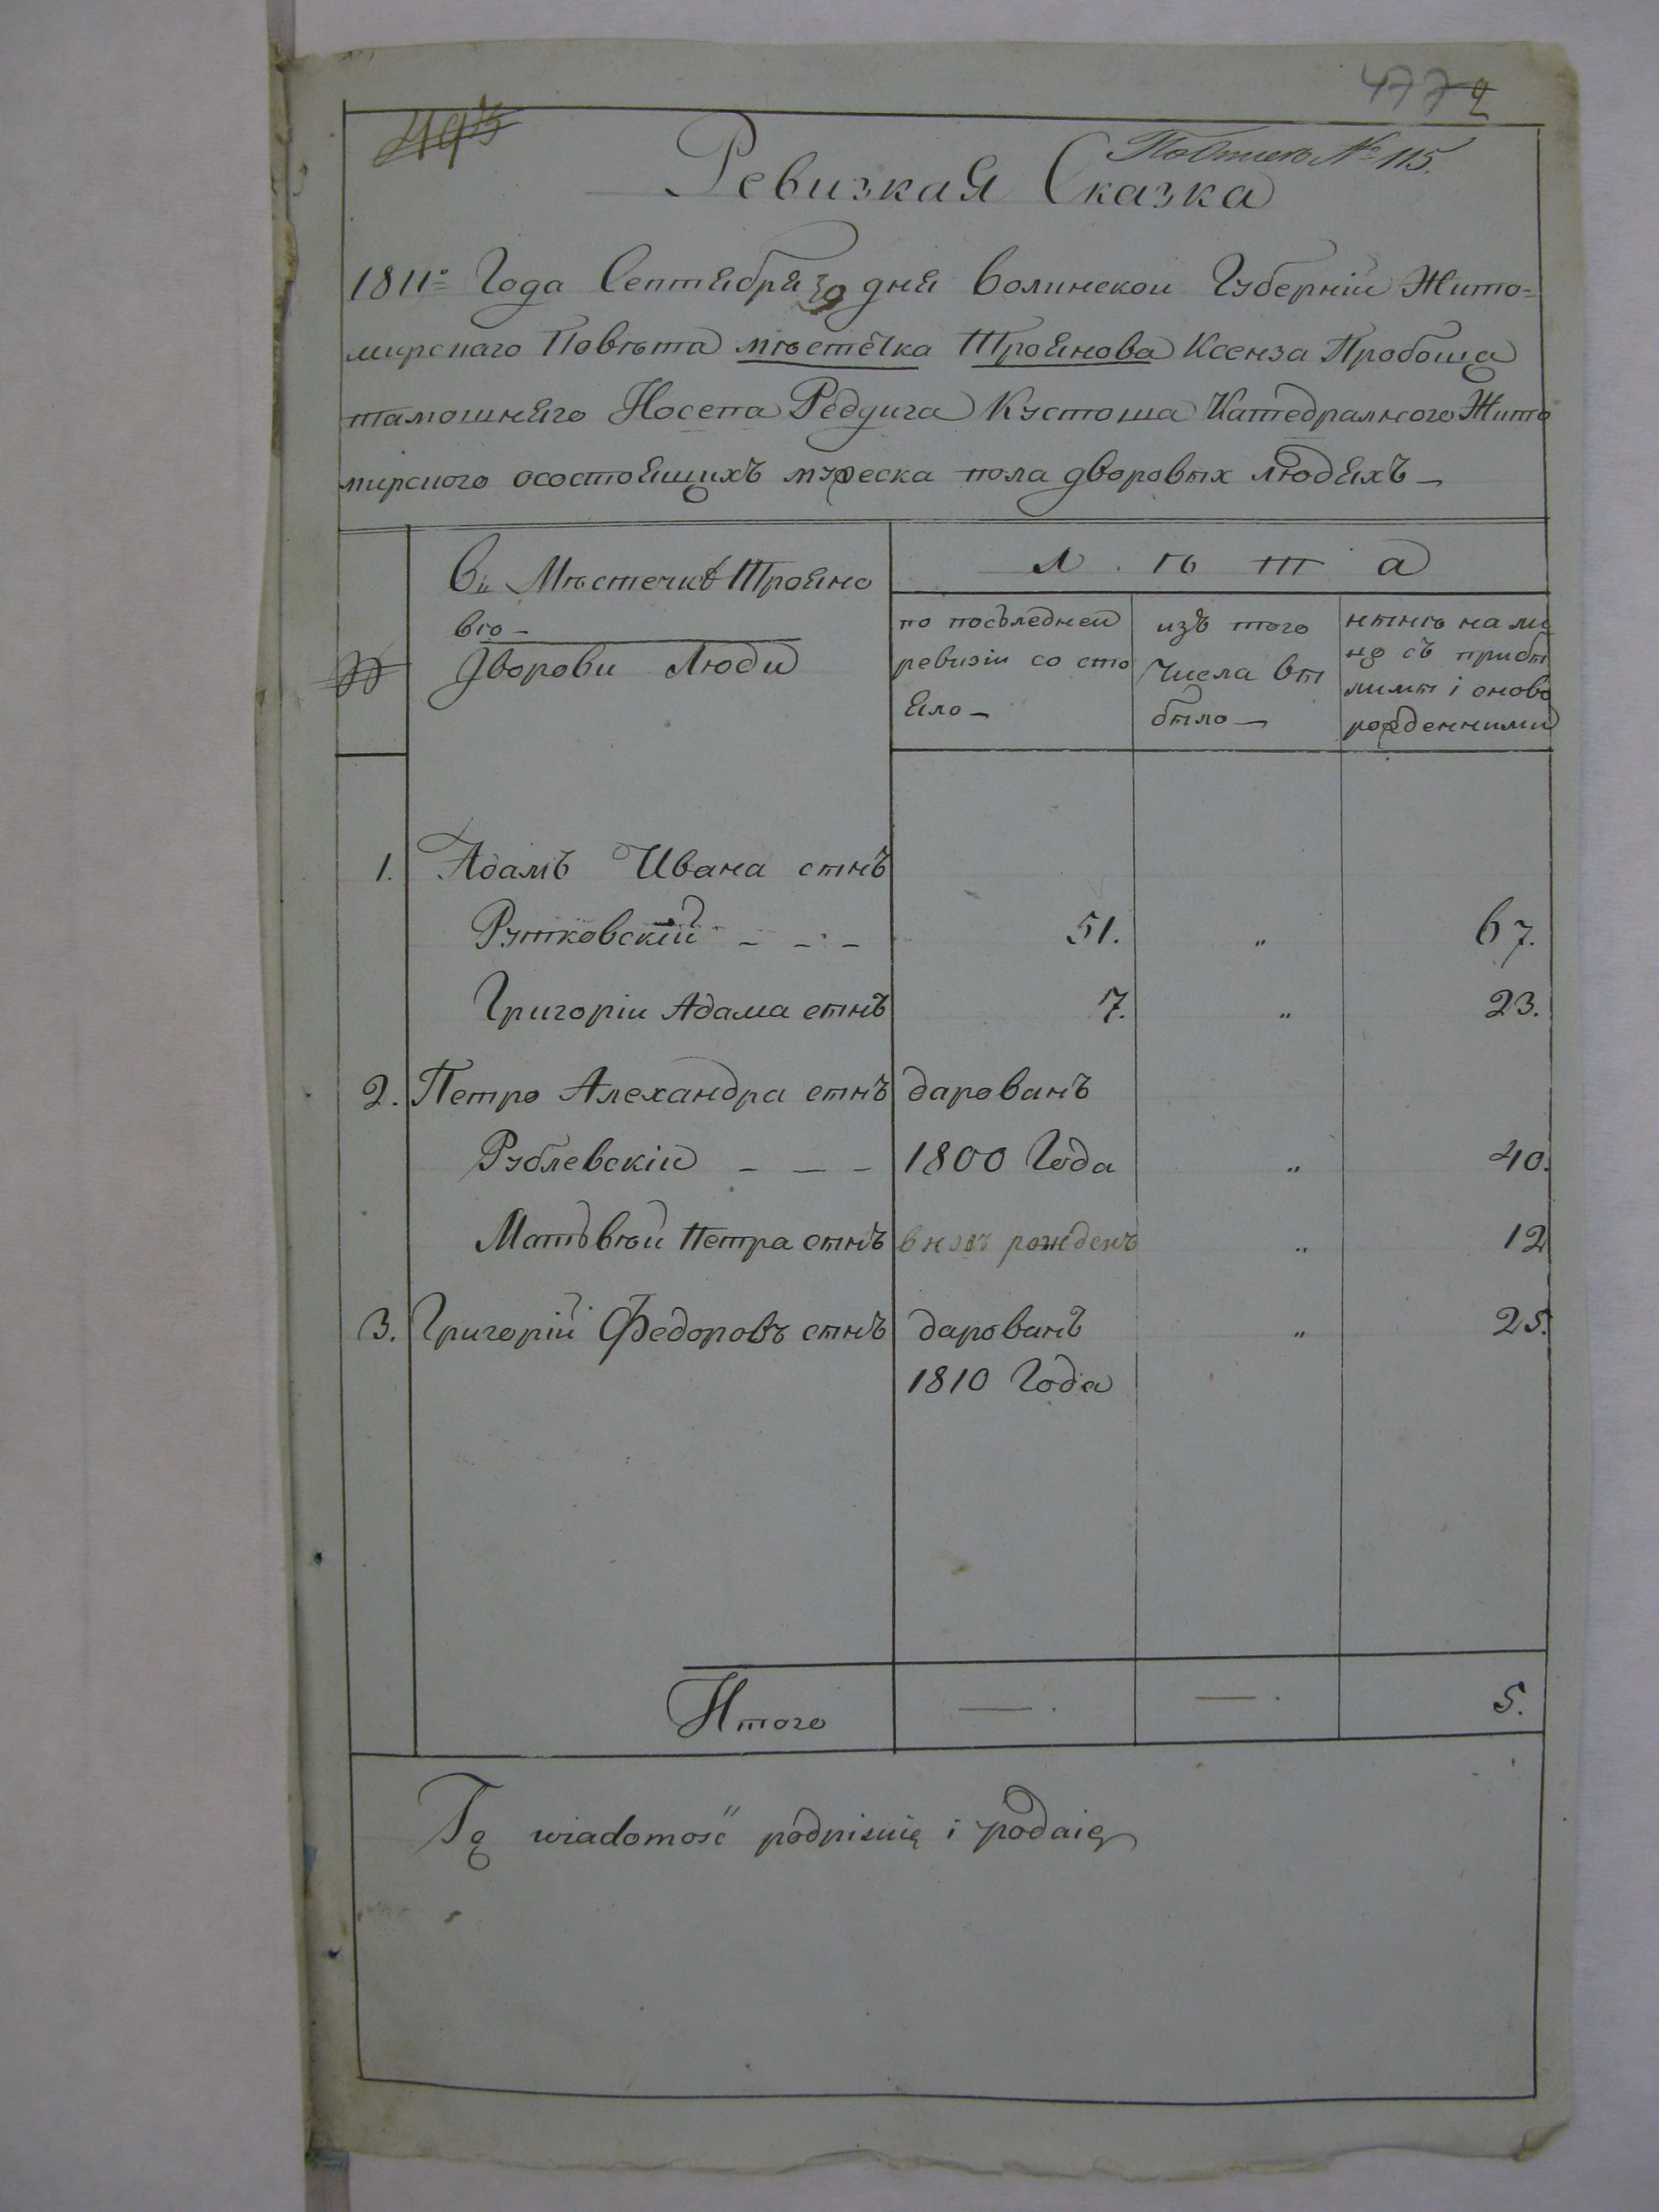 4772
495
По описи № 115.
Ревизкая Сказка
1811го Года Септября 30 дня Волинской Губерніи Жито=
мирскаго Повѣта мѣстечка Троянова Ксенза Пробоща
тамошняго Иосепа Редига Кустоша Катедралного Жито
мирского осостоящихъ мужеска пола дворовых людяхъ —
Въ Мѣстечкѣ Трояно
вѣ —
Дворови Люди
Л ѣ т а
по посъледней
ревизіи со сто
яло —
изъ того
числа вы
было —
нынѣ на ли
цо съ прибы
лими і оново
рожденними
1. Адамъ Ивана сынъ
Рутковскій — — — 51. „ 67.
Григоріи Адама сынъ 7. „ 23.
2. Петро Алехандра сынъ дарованъ
Рублевскій — — — 1800 Года „ 40.
Матъвѣй Петра сынъ вновь рожденъ „ 12
3. Григорій Федоровъ сынъ дарованъ „ 25.
1810 Года
Итого — . — . 5.
Tę wiadomość podpisuię i podaię